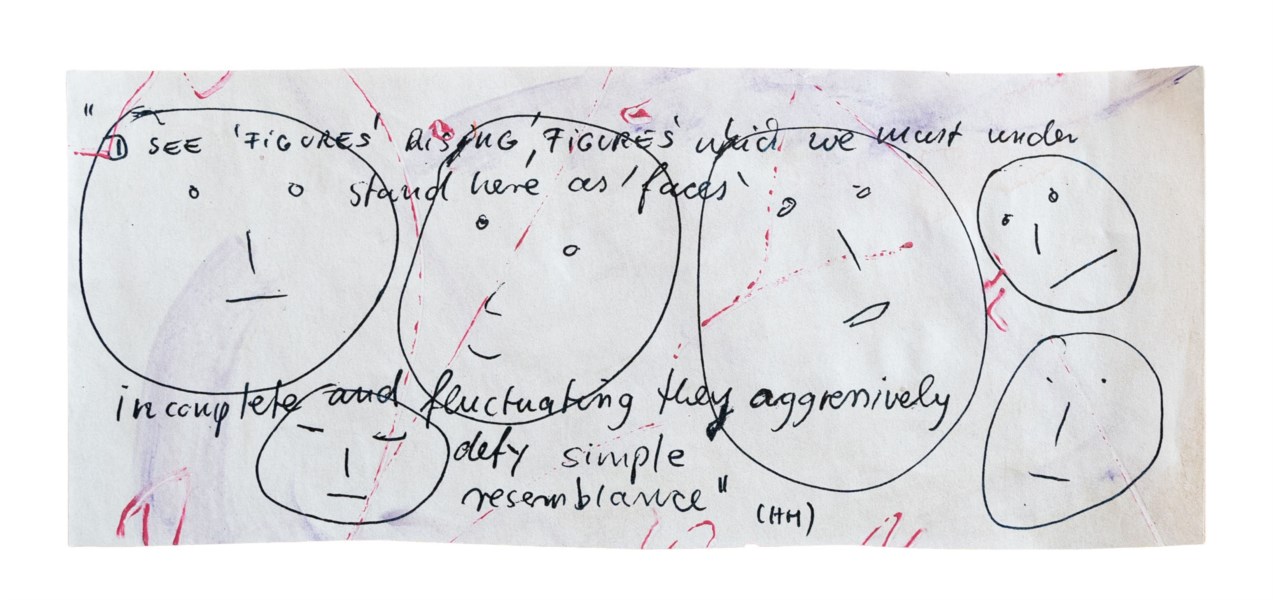 " I SEE 'FIGURES' RISING, 'FIGURES' which we must under
stand here as 'faces'
incomplete and fluctuating they aggressively
defy simple
resemblance"
(HH)